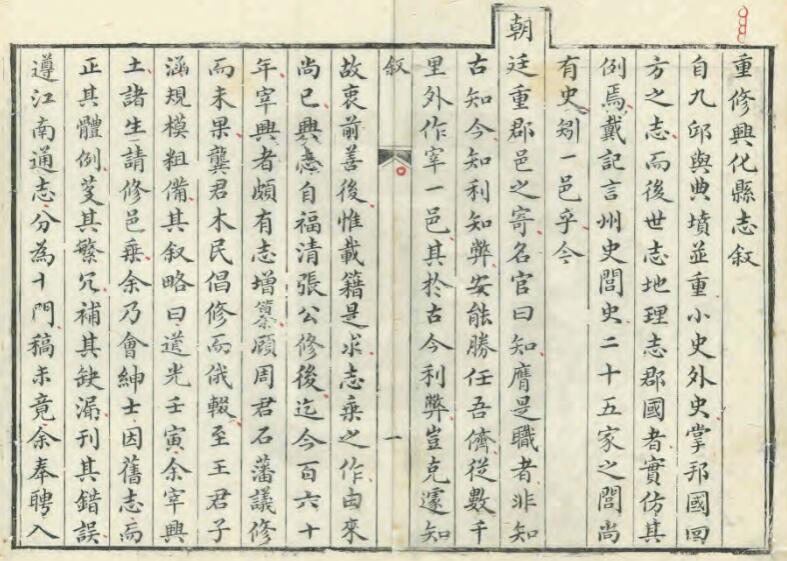 重修興化縣志叙
自九邱與典墳並重小史外史掌邦國四
方之志而後世志地理志郡國者實仿其
例焉戴記言州史閭史二十五家之閭尚
有史矧一邑乎今
朝廷重郡邑之寄名官曰知膺是職者非知
古知今知利知弊安能勝任吾儕從數千
里外作宰一邑其於古今利弊豈克遽知
叙
一
故衷前善後惟載籍是求志乘之作由來
尚已興志自福清張公修後迄今百六十
年宰興者頗有志增纂顧周君石藩議修
而未果龔君木民倡修而俄輟至王君子
涵規模粗備其叙略曰道光壬寅余宰興
土諸生請修邑乘余乃會紳士因舊志而
正其體例芟其繁冗補其缺漏刊其錯誤
遵江南通志分為十門稿未竟余奉聘入